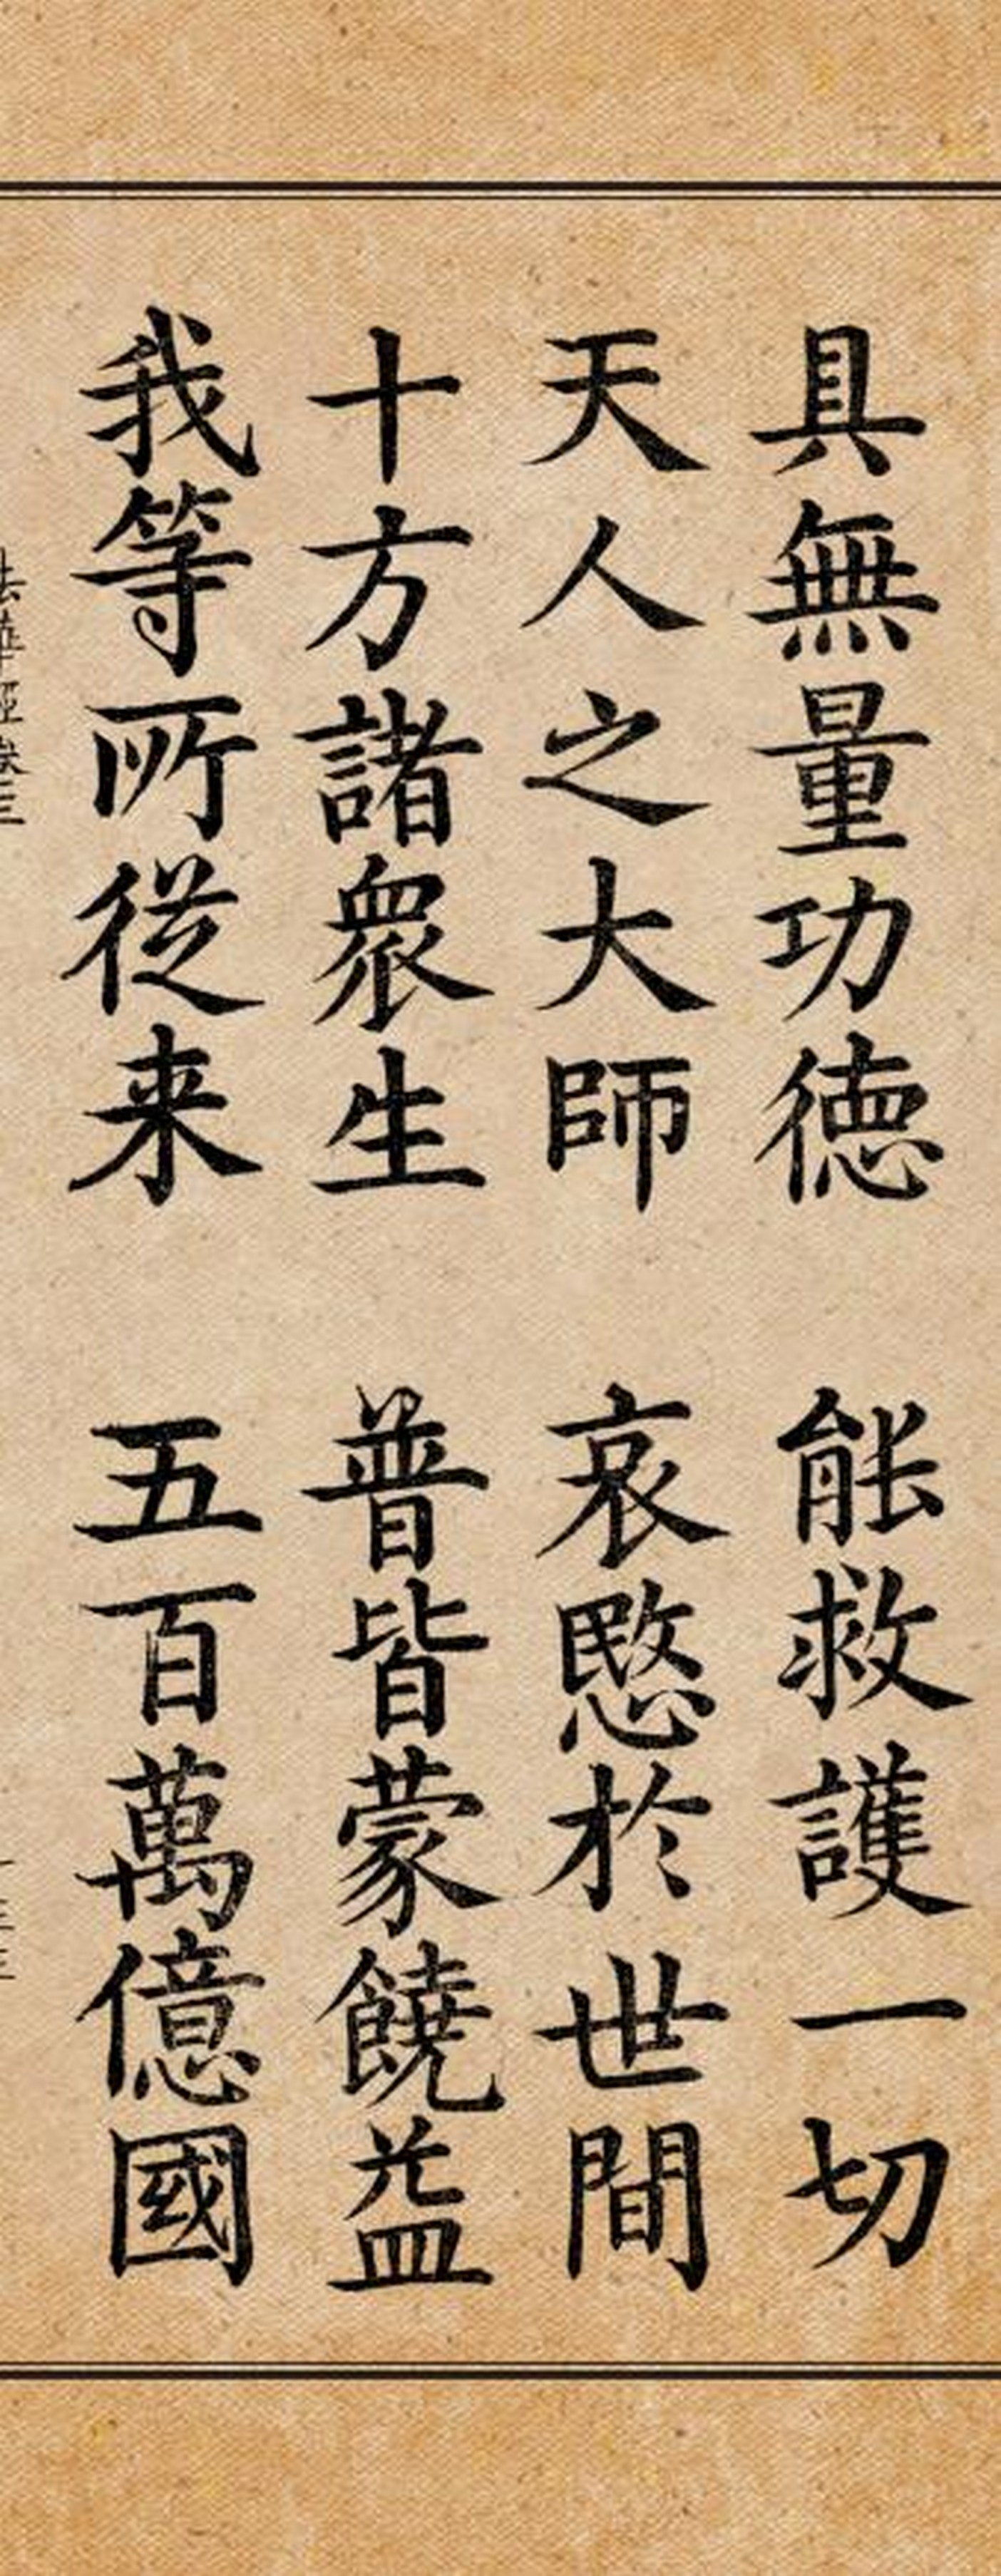 具無量功徳 能救護一切
天人之大師 哀愍於世間
十方諸衆生 普皆蒙饒益
我等所従来 五百萬億國
法華経巻三